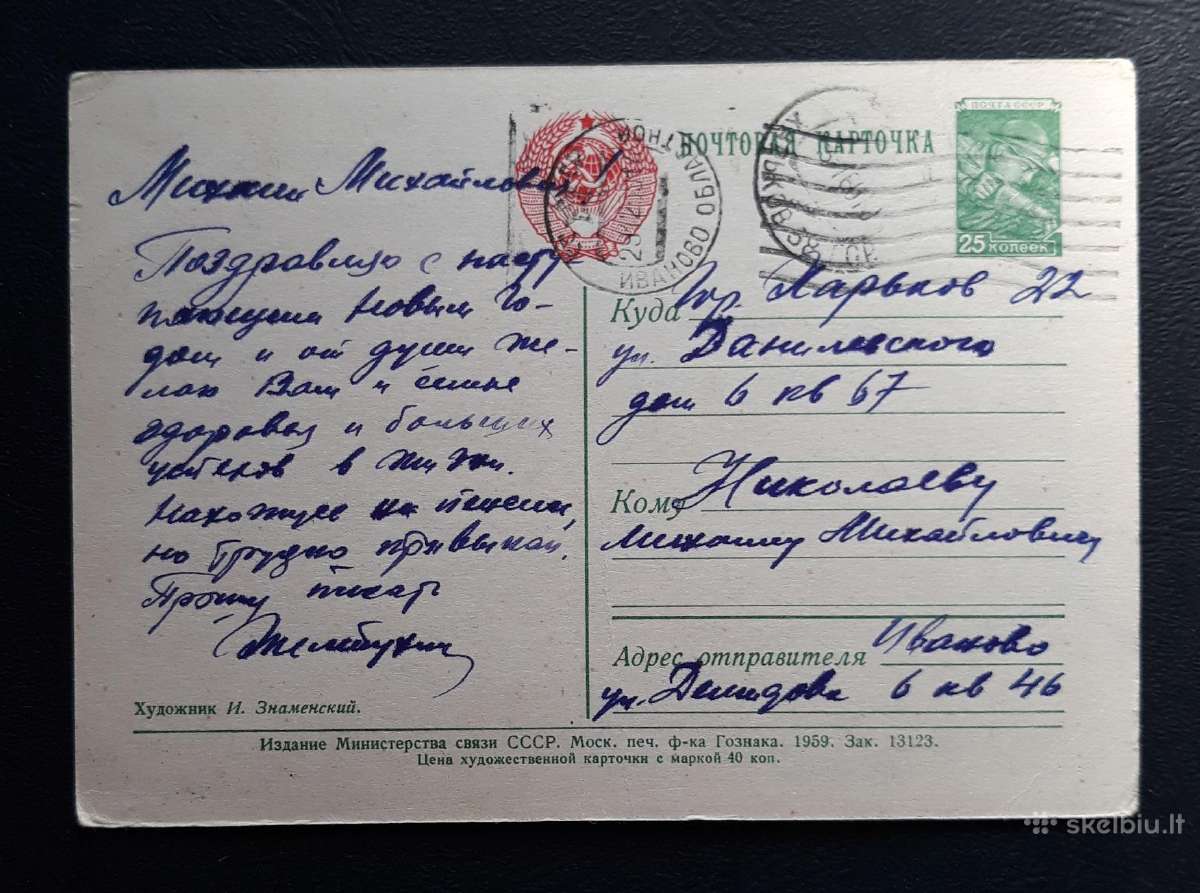 ПОЧТА СССР
ПОЧТОВАЯ КАРТОЧКА
25 КОПЕЕК
ИВАНОВО ОБЛАСТНОЙ
ХАРЬКОВ
Михаил Михайлович
Поздравляю с насту
пающим Новым Го-
дом и от души же-
лаю Вам и семье
здоровья и больших
успехов в жизни.
Нахожусь на пенсии,
но трудно привыкаю.
Прошу писать
Куда гор. Харьков 22
ул. Данилевского
дом 6 кв 67
Кому Николаеву
Михаилу Михайловичу
Адрес отправителя Иваново
ул. Демидова 6 кв 46
Художник И. Знаменский.
Издание Министерства связи СССР. Моск. печ. ф-ка Гознака. 1959. Зак. 13123.
Цена художественной карточки с маркой 40 коп.
skelbiu.lt